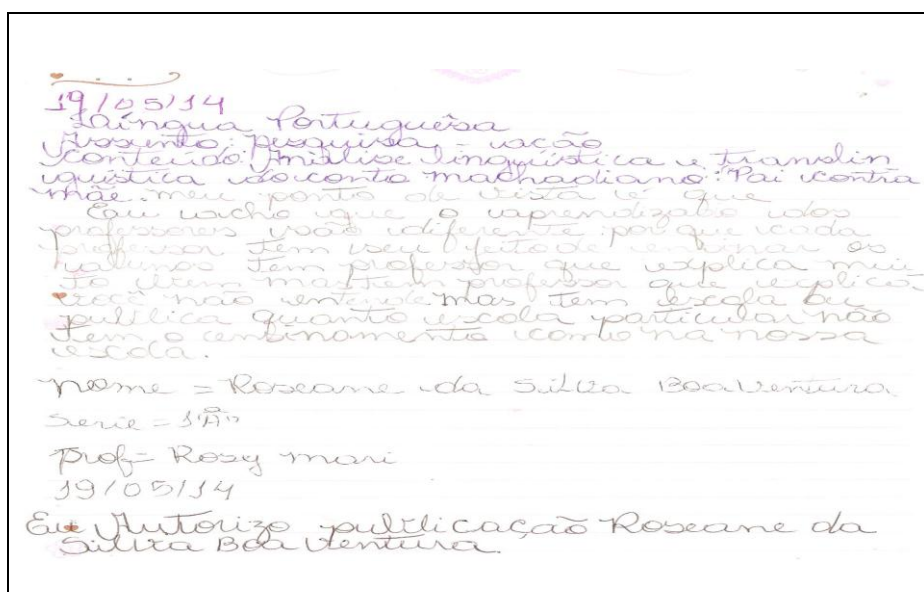 19/05/14
Língua Portuguêsa
Assunto: pesquisa, ação
conteúdo: Análise linguística e translin
guística do conto machadiano: Pai contra
mãe. meu ponto de vista é que
Eu acho que o aprendizado dos
professores são diferente por que cada
professor tem seu jeito de ensinar os
alunos tem professor que explica mui
to bem mas tem professor que explica
você não entende mas tem escola
publica quanto escola particular não
tem o ensinamento como na nossa
escola.
nome = Roseane da Silva Boa Ventura
Serie = 1ª "A"
prof= Rosy mari
19/05/14
Eu Autorizo publicação Roseane da
Silva Boa Ventura.